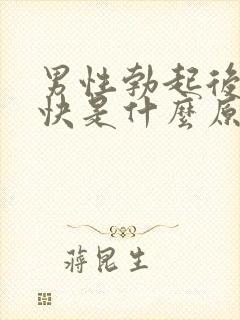 男性勃起後
快是什麼原
蔣昆生